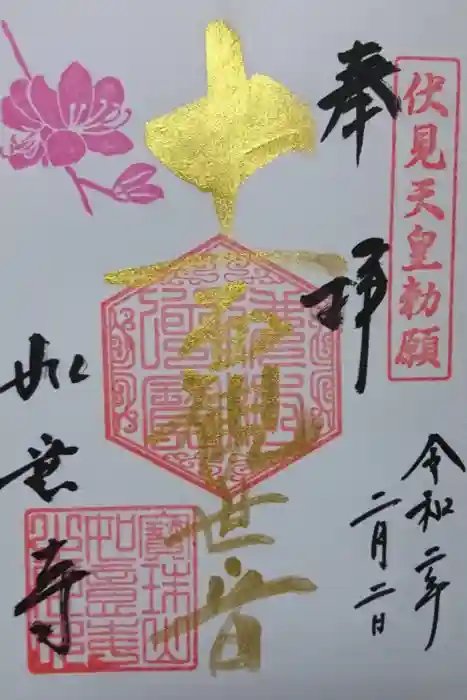 伏見天皇勅願
奉拝
令和二年
二月二日
世音
如意寺
寶珠山
如意寺